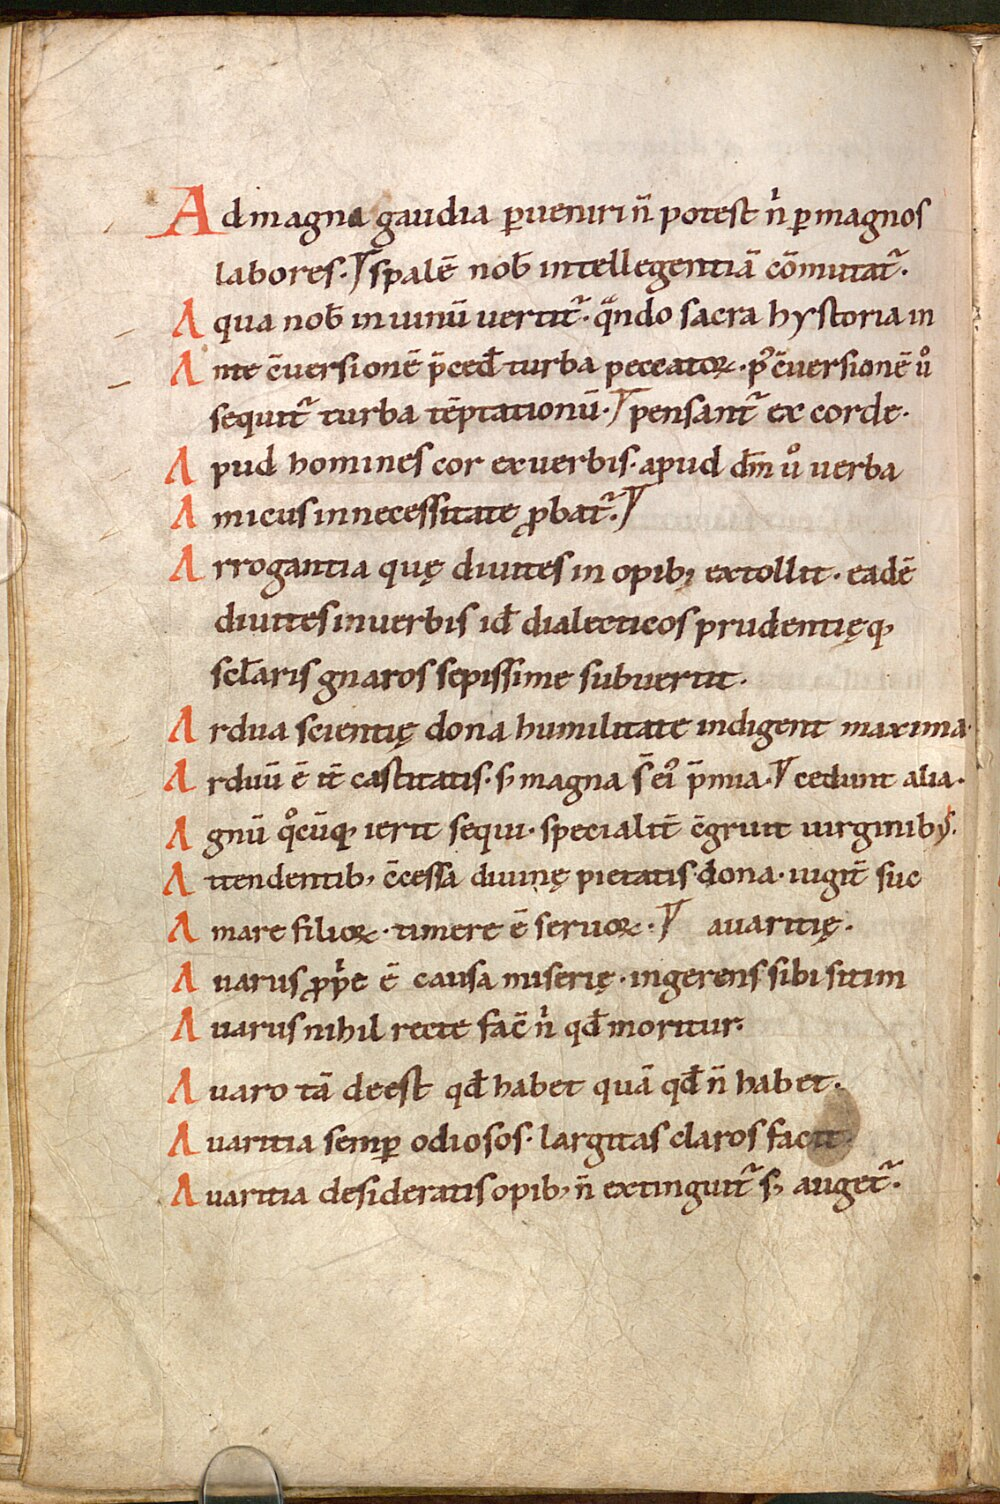 Ad magna gaudia ꝑueniri n̄ potest n̓ ꝑ magnos
labores. spalē nob̄ intellegentiā cōmutat᷑.
Aqua nob̄ in uinū uertit᷑. qͣndo sacra hystoria in
Ante c̄uersionē p̄ced̄ turba peccatoꝝ. pꝰ c̄uersionē uͦ
sequit᷑ turba tēptationū. pensant᷑ ex corde.
Apud homines cor ex uerbis. apud dm̄ uͦ uerba
Amicus in necessitate ꝓbat᷑.
Arrogantia quę diuites in opibꝫ extollit. eadē
diuites in uerbis id̄ dialecticos prudentięqꝫ
scl̄aris gnaros sepissime subuertit.
Ardua scientię dona humilitate indigent maxima.
Arduū ē it̄ castitatis. sꝫ magna s̄ eiꝰ p̄mia. cedunt alia.
Agnū qͦcūqꝫ ierit sequi. specialit̄ c̄gruit uirginibꝫ.
Attendentibꝫ c̄cessa diuinę pietatis dona. uigit̄ suc
Amare filioꝝ. timere ē seruoꝝ. auaritię.
Auarus ꝓp̓e ē causa miserię. ingerens sibi sitim
Auarus nihil recte fac̄ n̓ qd̄ moritur.
Auaro tā deest qd̄ habet quā qd̄ n̄ habet.
Auaritia semꝑ odiosos. largitas claros facit.
Auaritia desideratis opibꝫ n̄ extinguit᷑ sꝫ auget᷑.